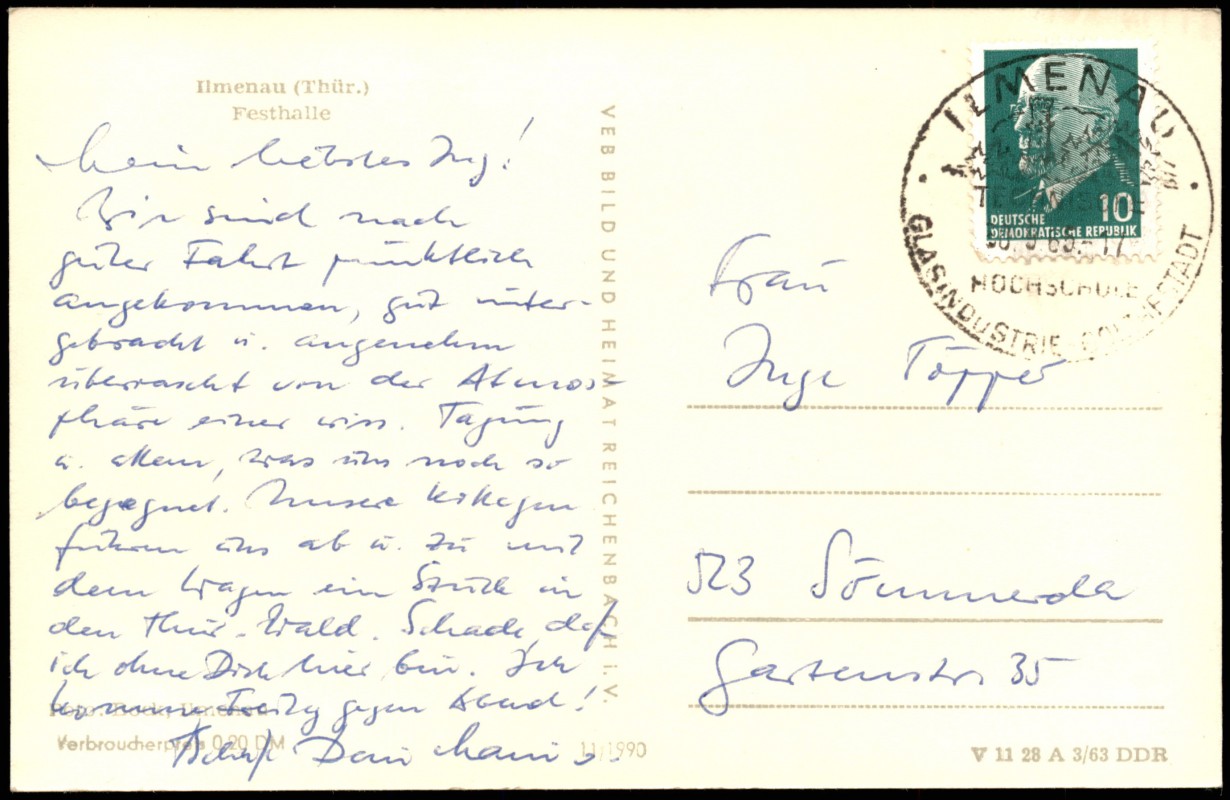 Ilmenau (Thür.)
Festhalle
Mein liebstes Ing!
Wir sind nach
guter Fahrt pünktlich
angekommen, gut unter-
gebracht u. angenehm
überrascht von der Atmos-
phäre einer wiss. Tagung
u. allem, was uns noch so
begegnet. Unsere Kollegen
führen uns ab u. zu mit
dem Wagen ein Stück in
den Thür. Wald. Schade, daß
ich ohne Dich hier bin. Ich
komme Freitag gegen Abend!
Dein
Verbraucherpreis 0,20 DM
11/1990
VEB BILD UND HEIMAT REICHENBACH I. V.
ILMENAU
DEUTSCHE
DEMOKRATISCHE REPUBLIK
10
HOCHSCHULE
GLASINDUSTRIE-GOETHESTADT
Frau
Inge Töpper
523 Sömmerda
Gartenstr. 35
V 11 28 A 3/63 DDR